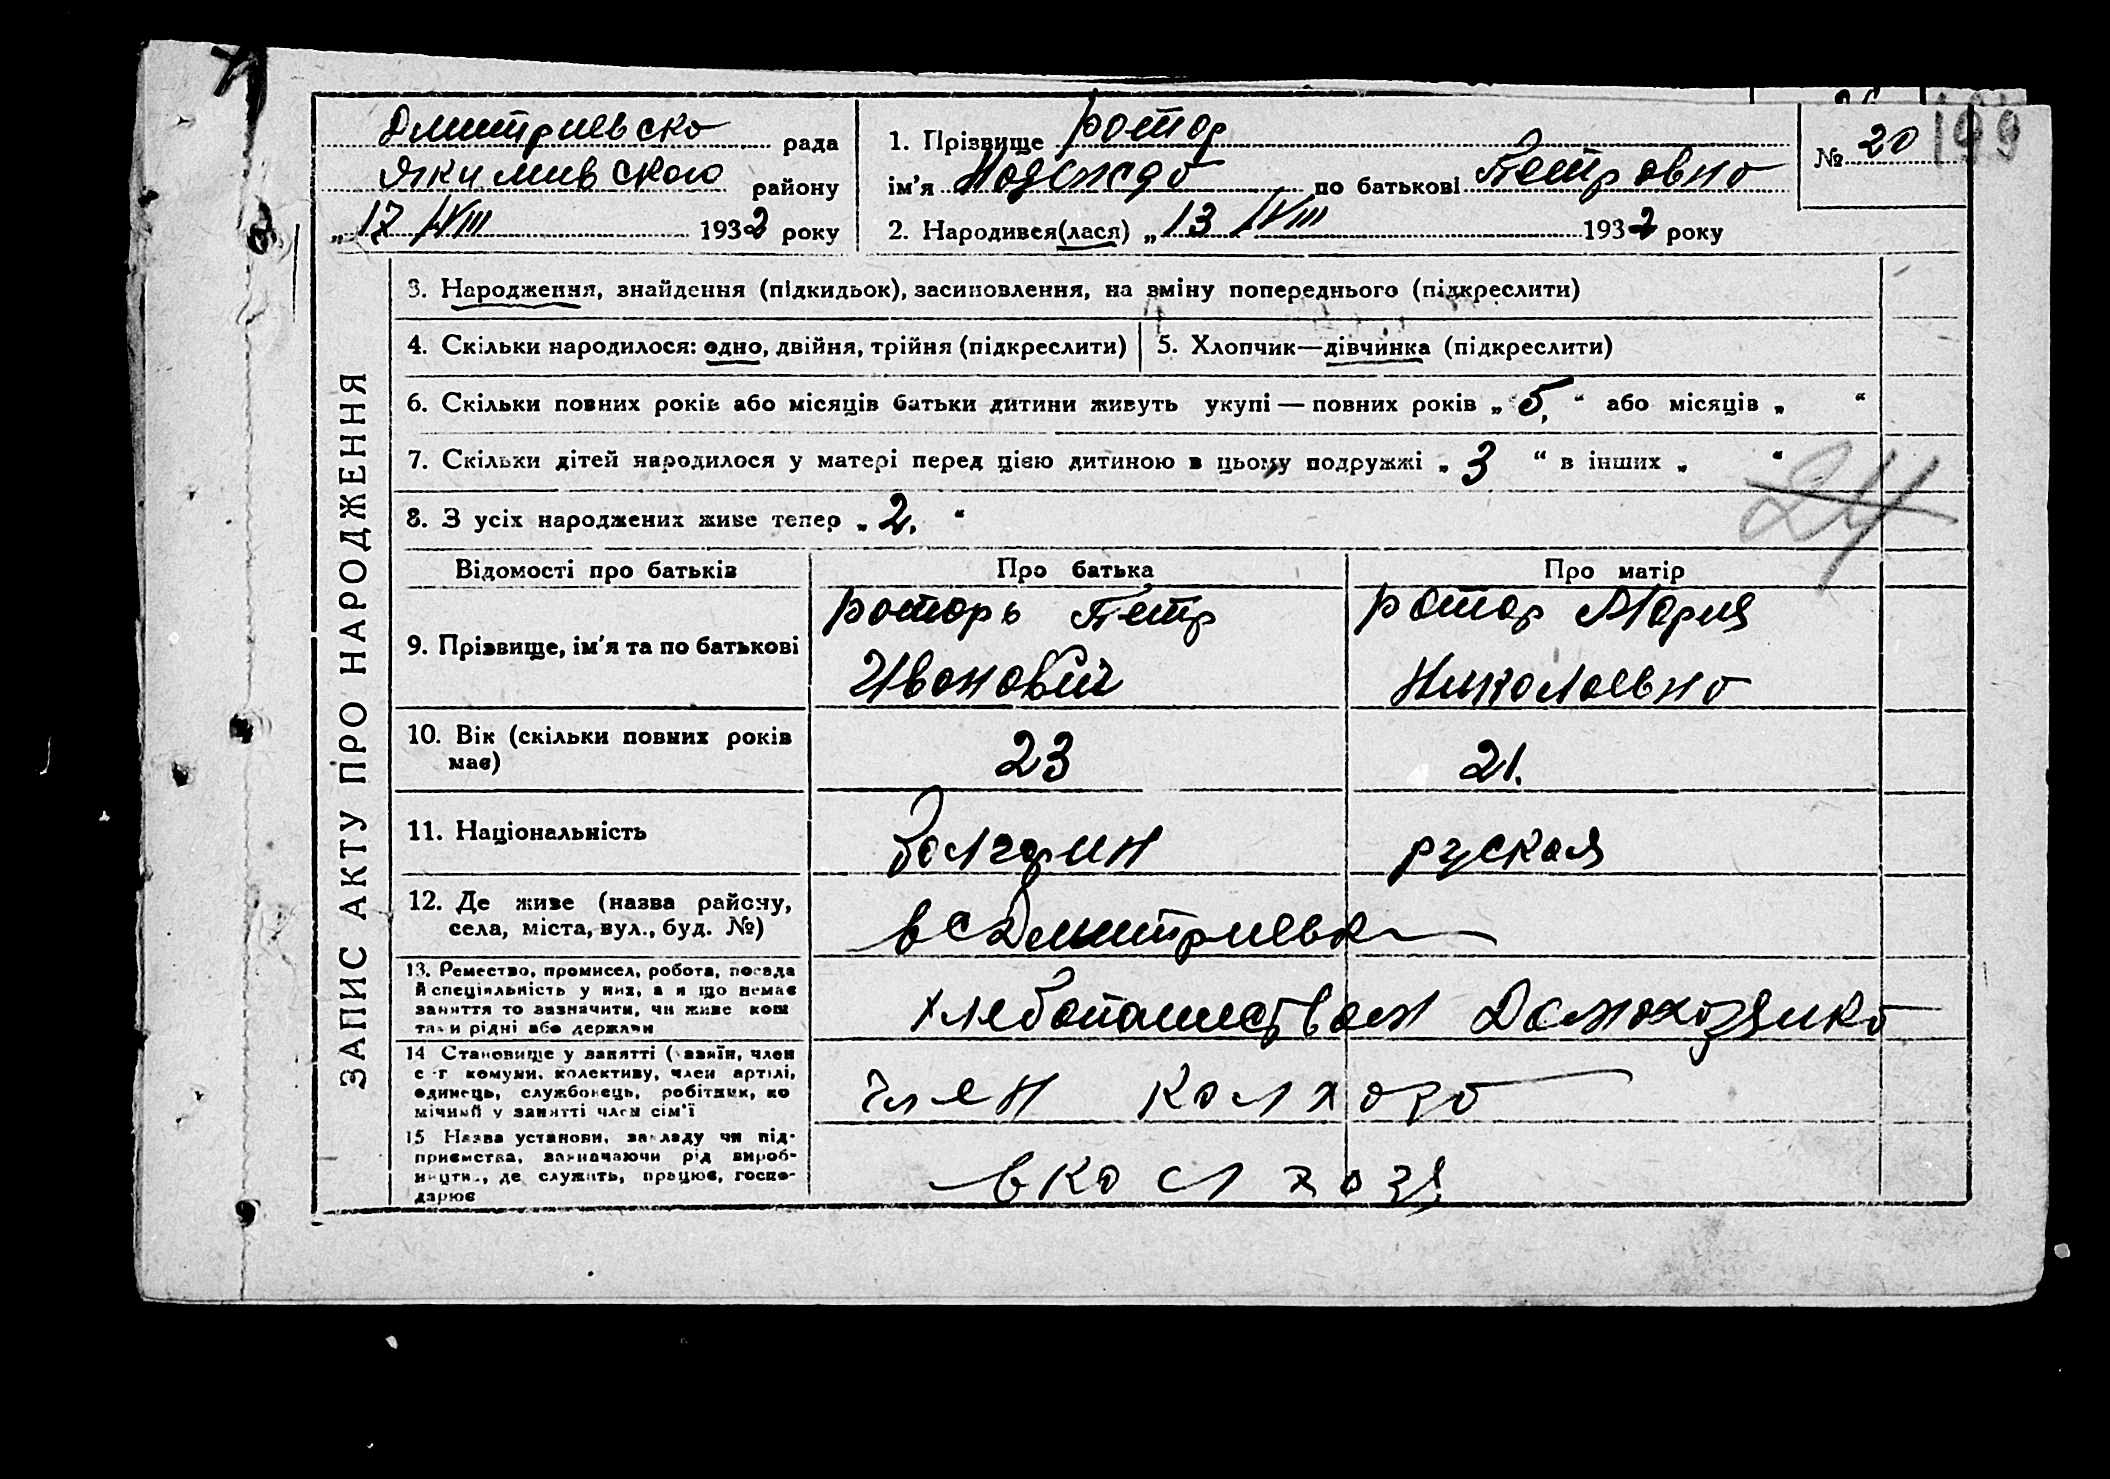 Дмитриевска рада
Якимивского району
„ 17 /VIII 1932 року
1. Прізвище Ротор
ім'я Надежда по батькові Петровна
2. Народився(лася) „ 13 /VIII 1932 року
№ 20
199
ЗАПИС АКТУ ПРО НАРОДЖЕННЯ
3. Народження, знайдення (підкидьок), засиновлення, на зміну попереднього (підкреслити)
4. Скільки народилося: одно, двійня, трійня (підкреслити)
5. Хлопчик—дівчинка (підкреслити)
6. Скільки повних років або місяців батьки дитини живуть укупі — повних років „ 5, “ або місяців „ “
7. Скільки дітей народилося у матері перед цією дитиною в цьому подружжі „ 3 “ в інших „ “
8. З усіх народжених живе тепер „ 2. “
24
Відомості про батьків
Про батька
Про матір
9. Прізвище, ім'я та по батькові
Роторь Петр
Иванович
Ротор Мария
Николаевна
10. Вік (скільки повних років
має)
23
21.
11. Національність
болгарин
руская
12. Де живе (назва району,
села, міста, вул., буд. №)
в с Дмитриевка
13. Ремество, промисел, робота, посада
й спеціяльність у них, а я що немає
заняття то зазначити, чи живе кош
тами рідні або держави
хлебопашеством Домохозяика
14 Становище у занятті (хазяїн, член
с-г комуни, колективу, член артілі,
одинець, службовець, робітник, по
мічний у занятті член сім'ї
член колхоза
15 Назва установи, закладу чи під-
приємства, зазначаючи рід вироб-
ництва, де служить, працює, госпо-
дарює
в колхозя